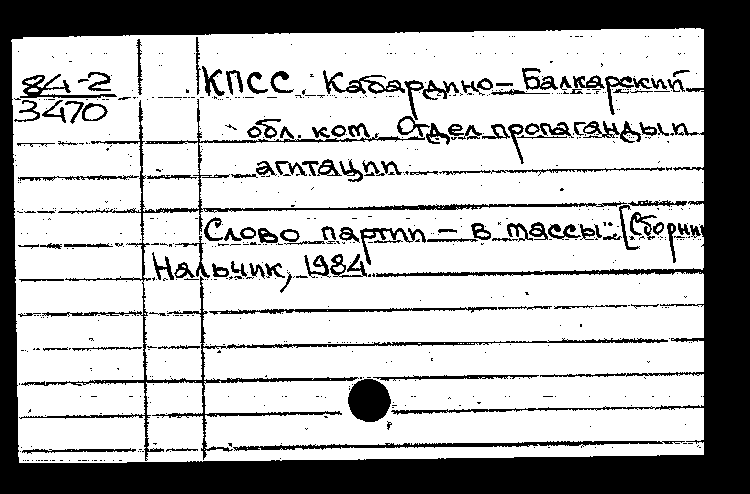 84-2
3470
КПСС. Кабардино-Балкарский
обл. ком. Отдел пропаганды и
агитации
Слово партии - в массы: [Сборни
Нальчик, 1984